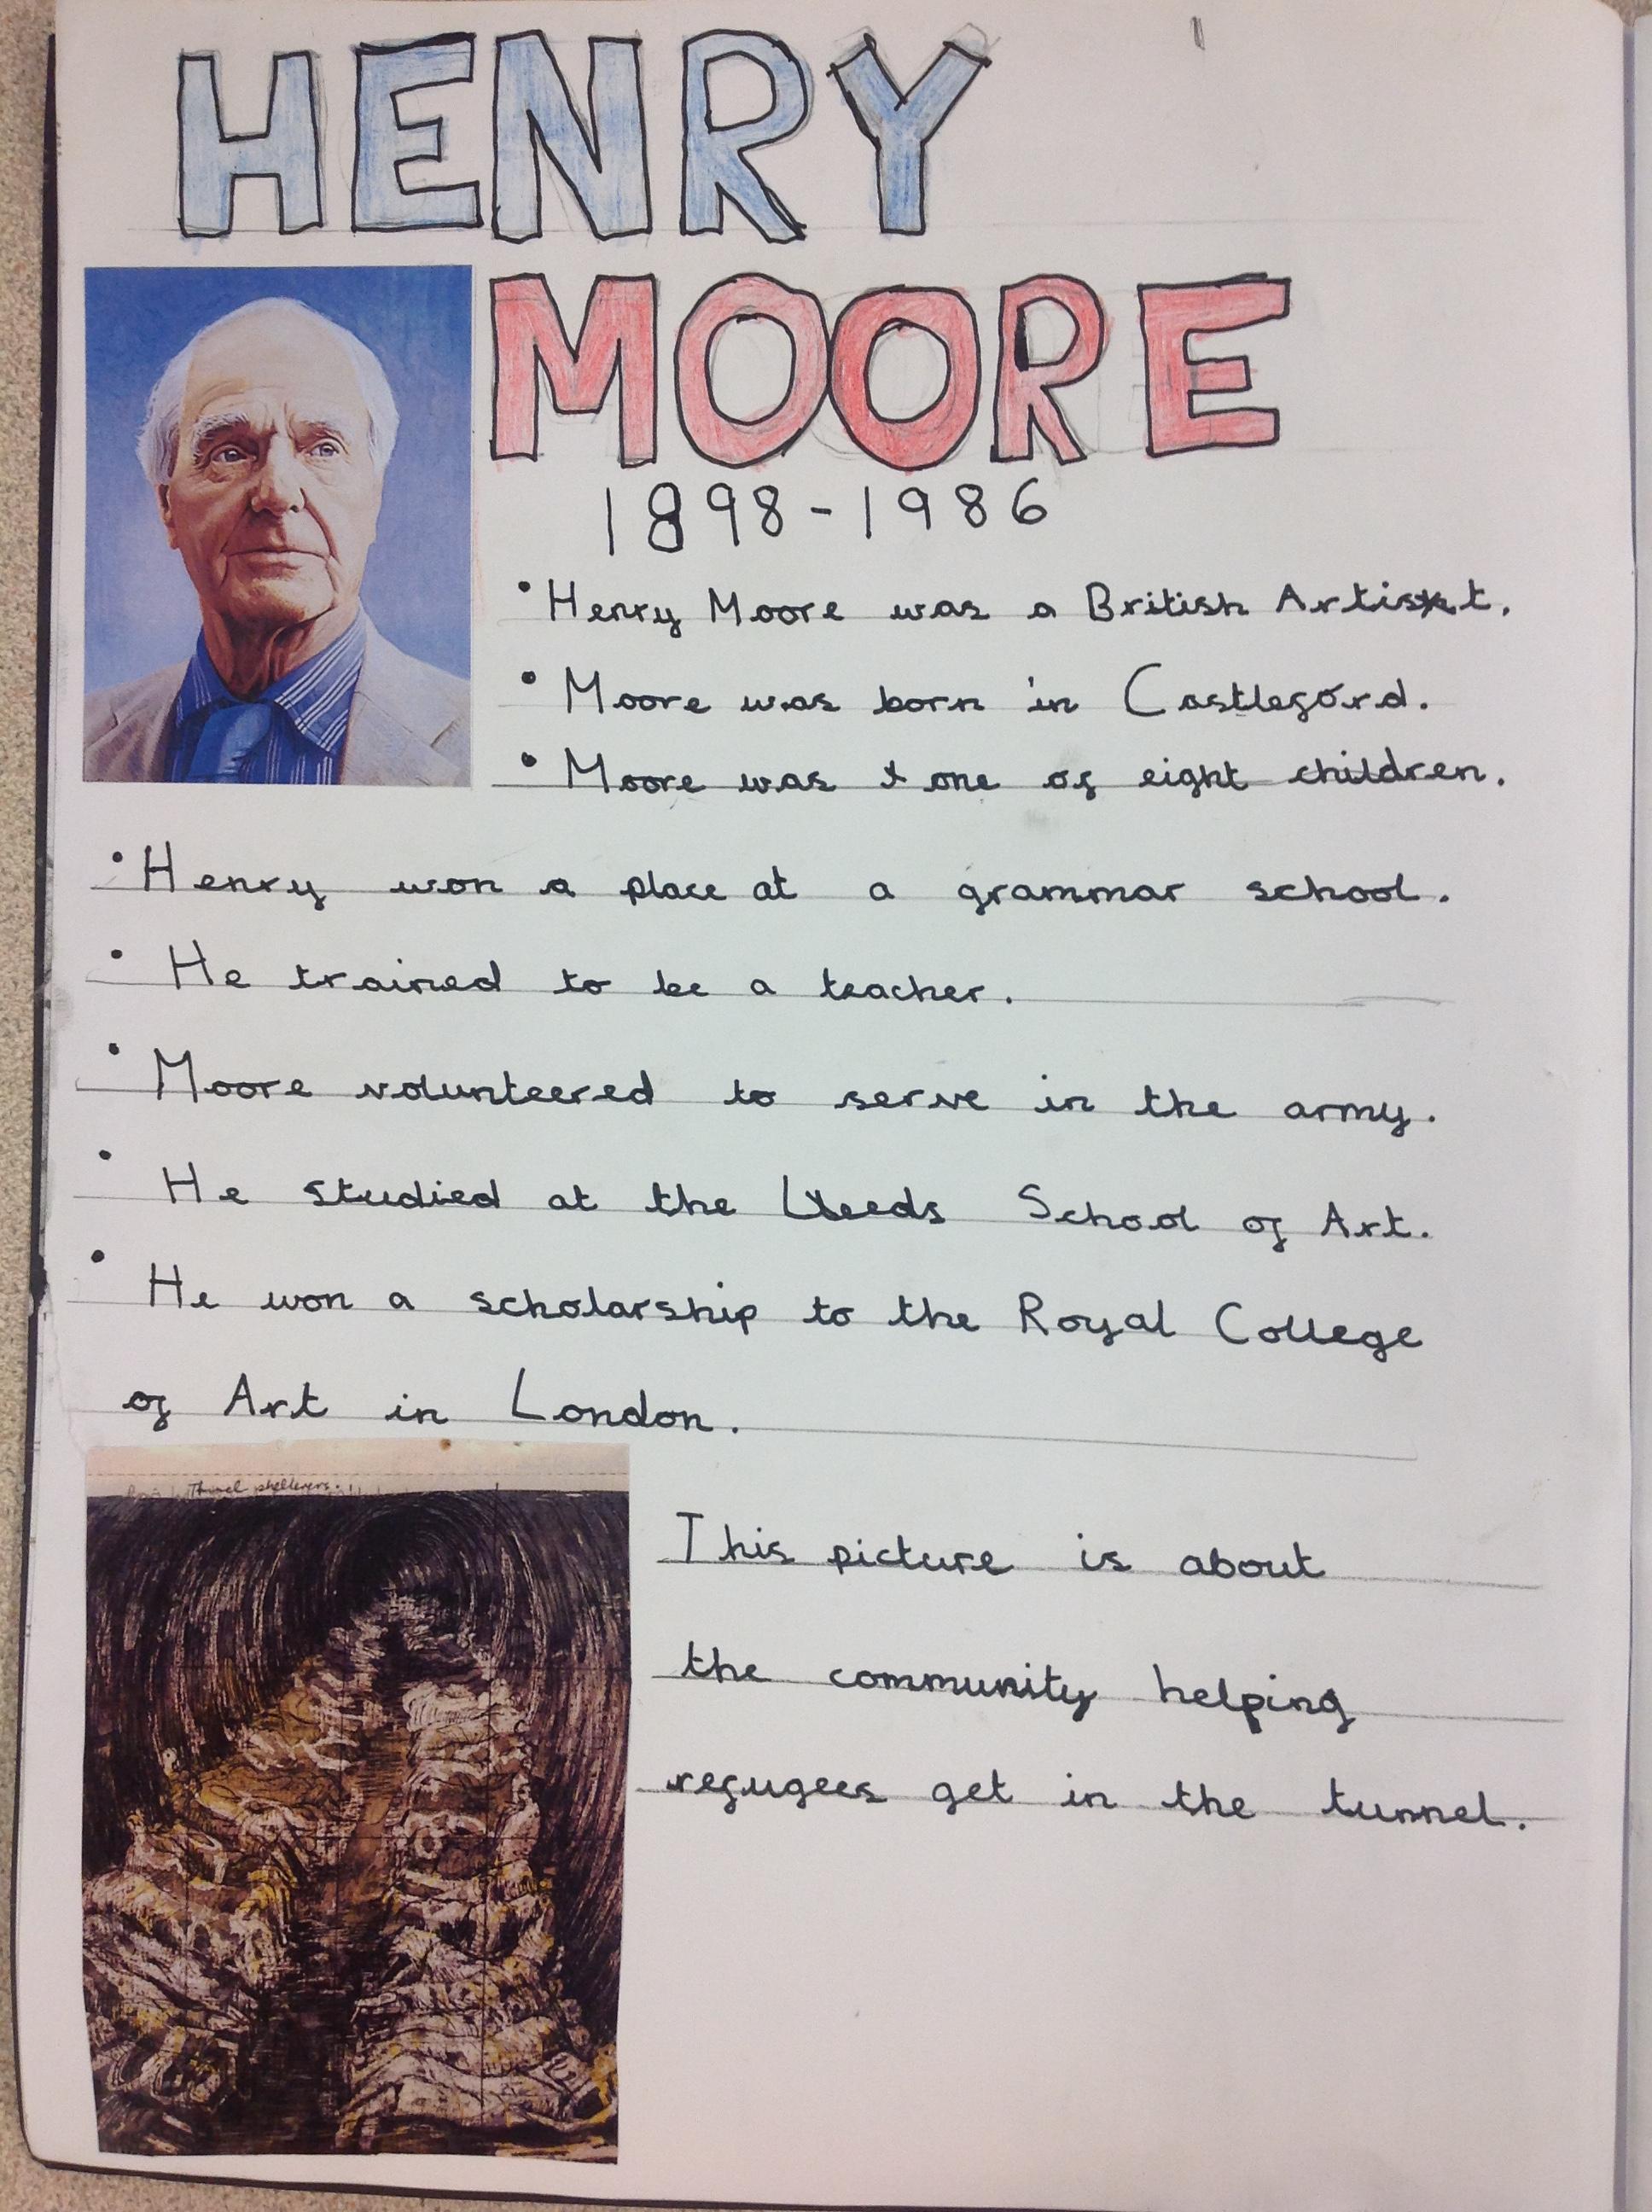 HENRY
MOORE
1898-1986
• Henry Moore was a British Artist.
• Moore was born in Castleford.
• Moore was one of eight children.
• Henry won a place at a grammar school.
• He trained to be a teacher.
• Moore volunteered to serve in the army.
• He studied at the Leeds School of Art.
• He won a scholarship to the Royal College
of Art in London.
shelterers.
This picture is about
the community helping
refugees get in the tunnel.